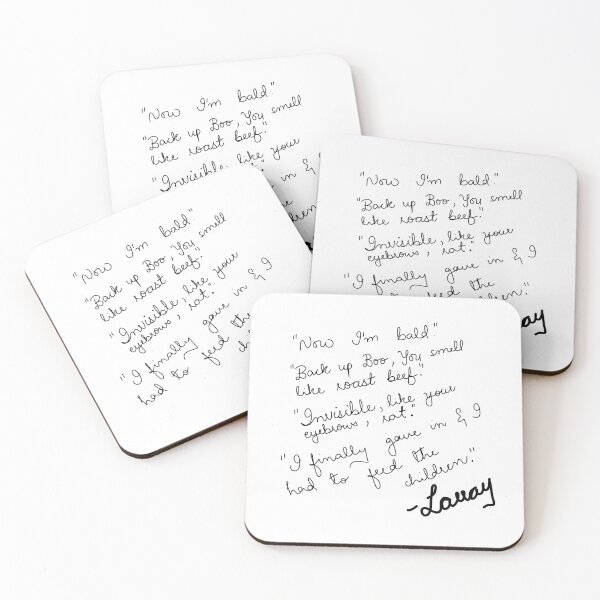 "Now I'm bald."
"Back up Boo, You smell
like roast beef."
"Invisible, like your
in &
"Now I'm bald."
"Back up Boo, You smell
like roast beef."
"Invisible, like your
eyebrows, rat."
"I finally gave in & I
feed the
children."
"Now I'm bald"
"Back up Boo, You smell
like roast beef."
"Invisible, like your
eyebrows, rat."
"I finally gave in & I
had to feed the
"Now I'm bald."
"Back up Boo, You smell
like roast beef."
"Invisible, like your
eyebrows, rat."
"I finally gave in & I
had to feed the
children."
-Larray